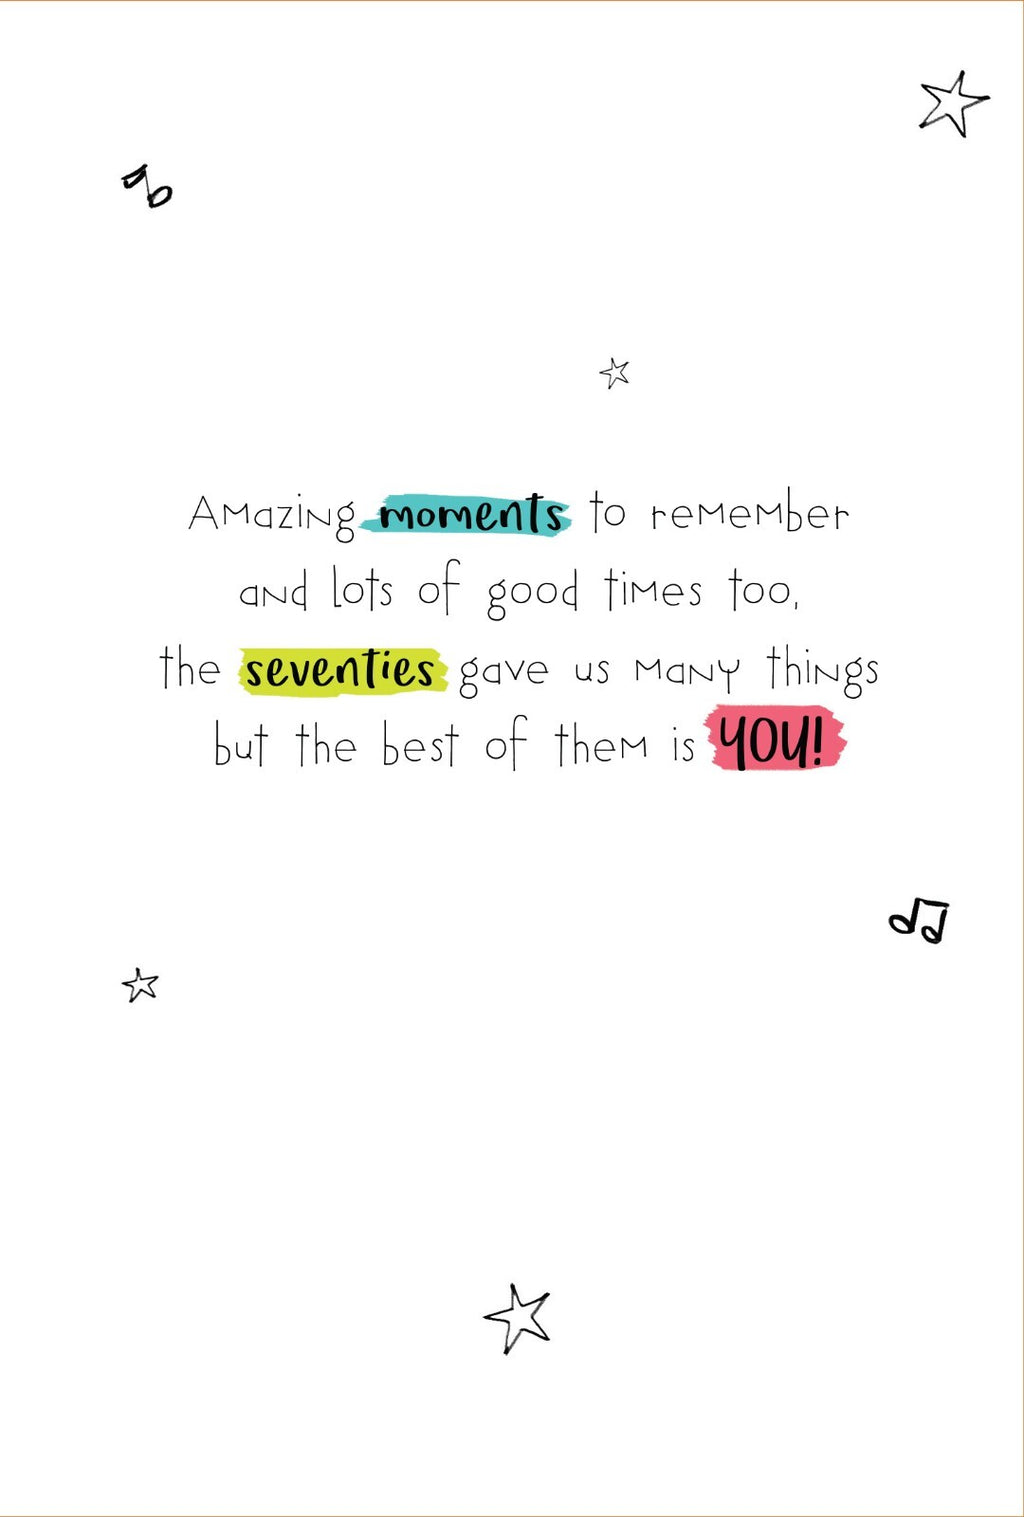 Amazing moments to remember
and lots of good times too,
the seventies gave us many things
but the best of them is YOU!